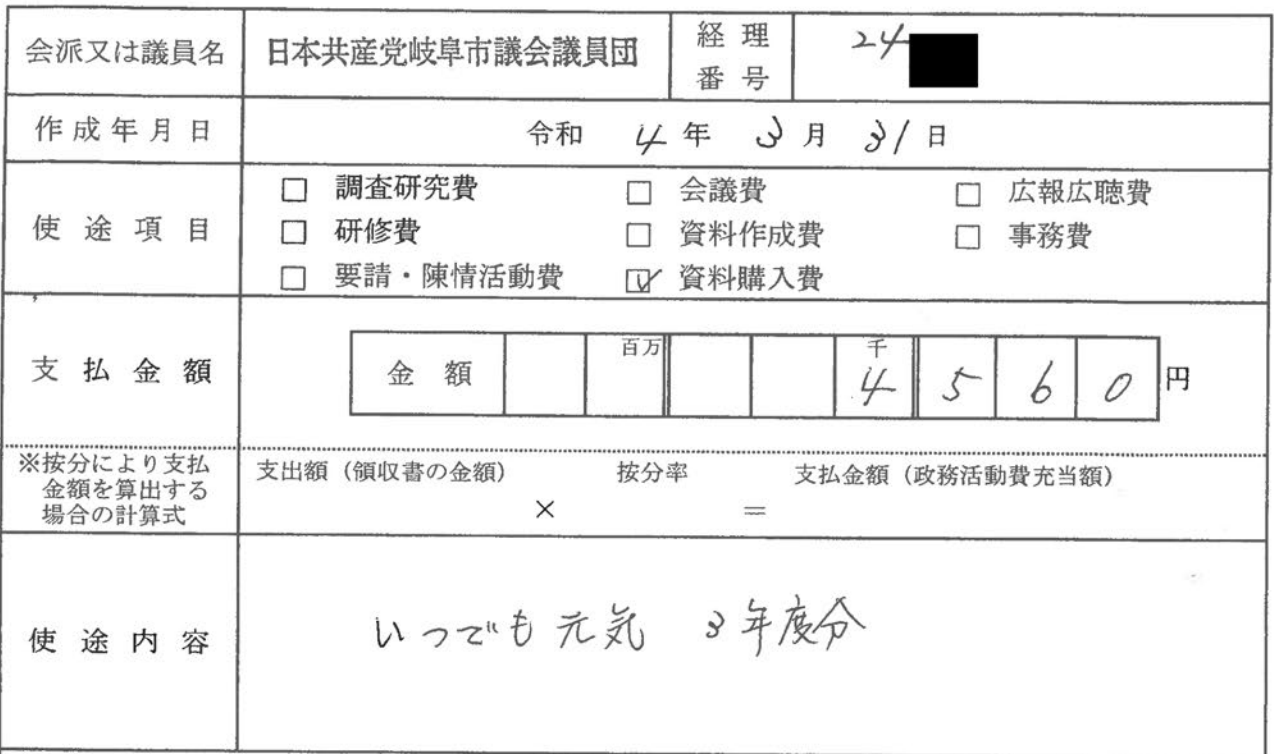 会派又は議員名 日本共産党岐阜市議会議員団 経理番号 24
作成年月日 令和 4年 3月 31日
使途項目 □ 調査研究費 □ 会議費 □ 広報広聴費
□ 研修費 □ 資料作成費 □ 事務費
□ 要請・陳情活動費 ☑ 資料購入費
支払金額 金額 百万 千 4 5 6 0 円
※按分により支払金額を算出する場合の計算式 支出額（領収書の金額） 按分率 支払金額（政務活動費充当額）
× ＝
使途内容 いつでも元気 3年度分